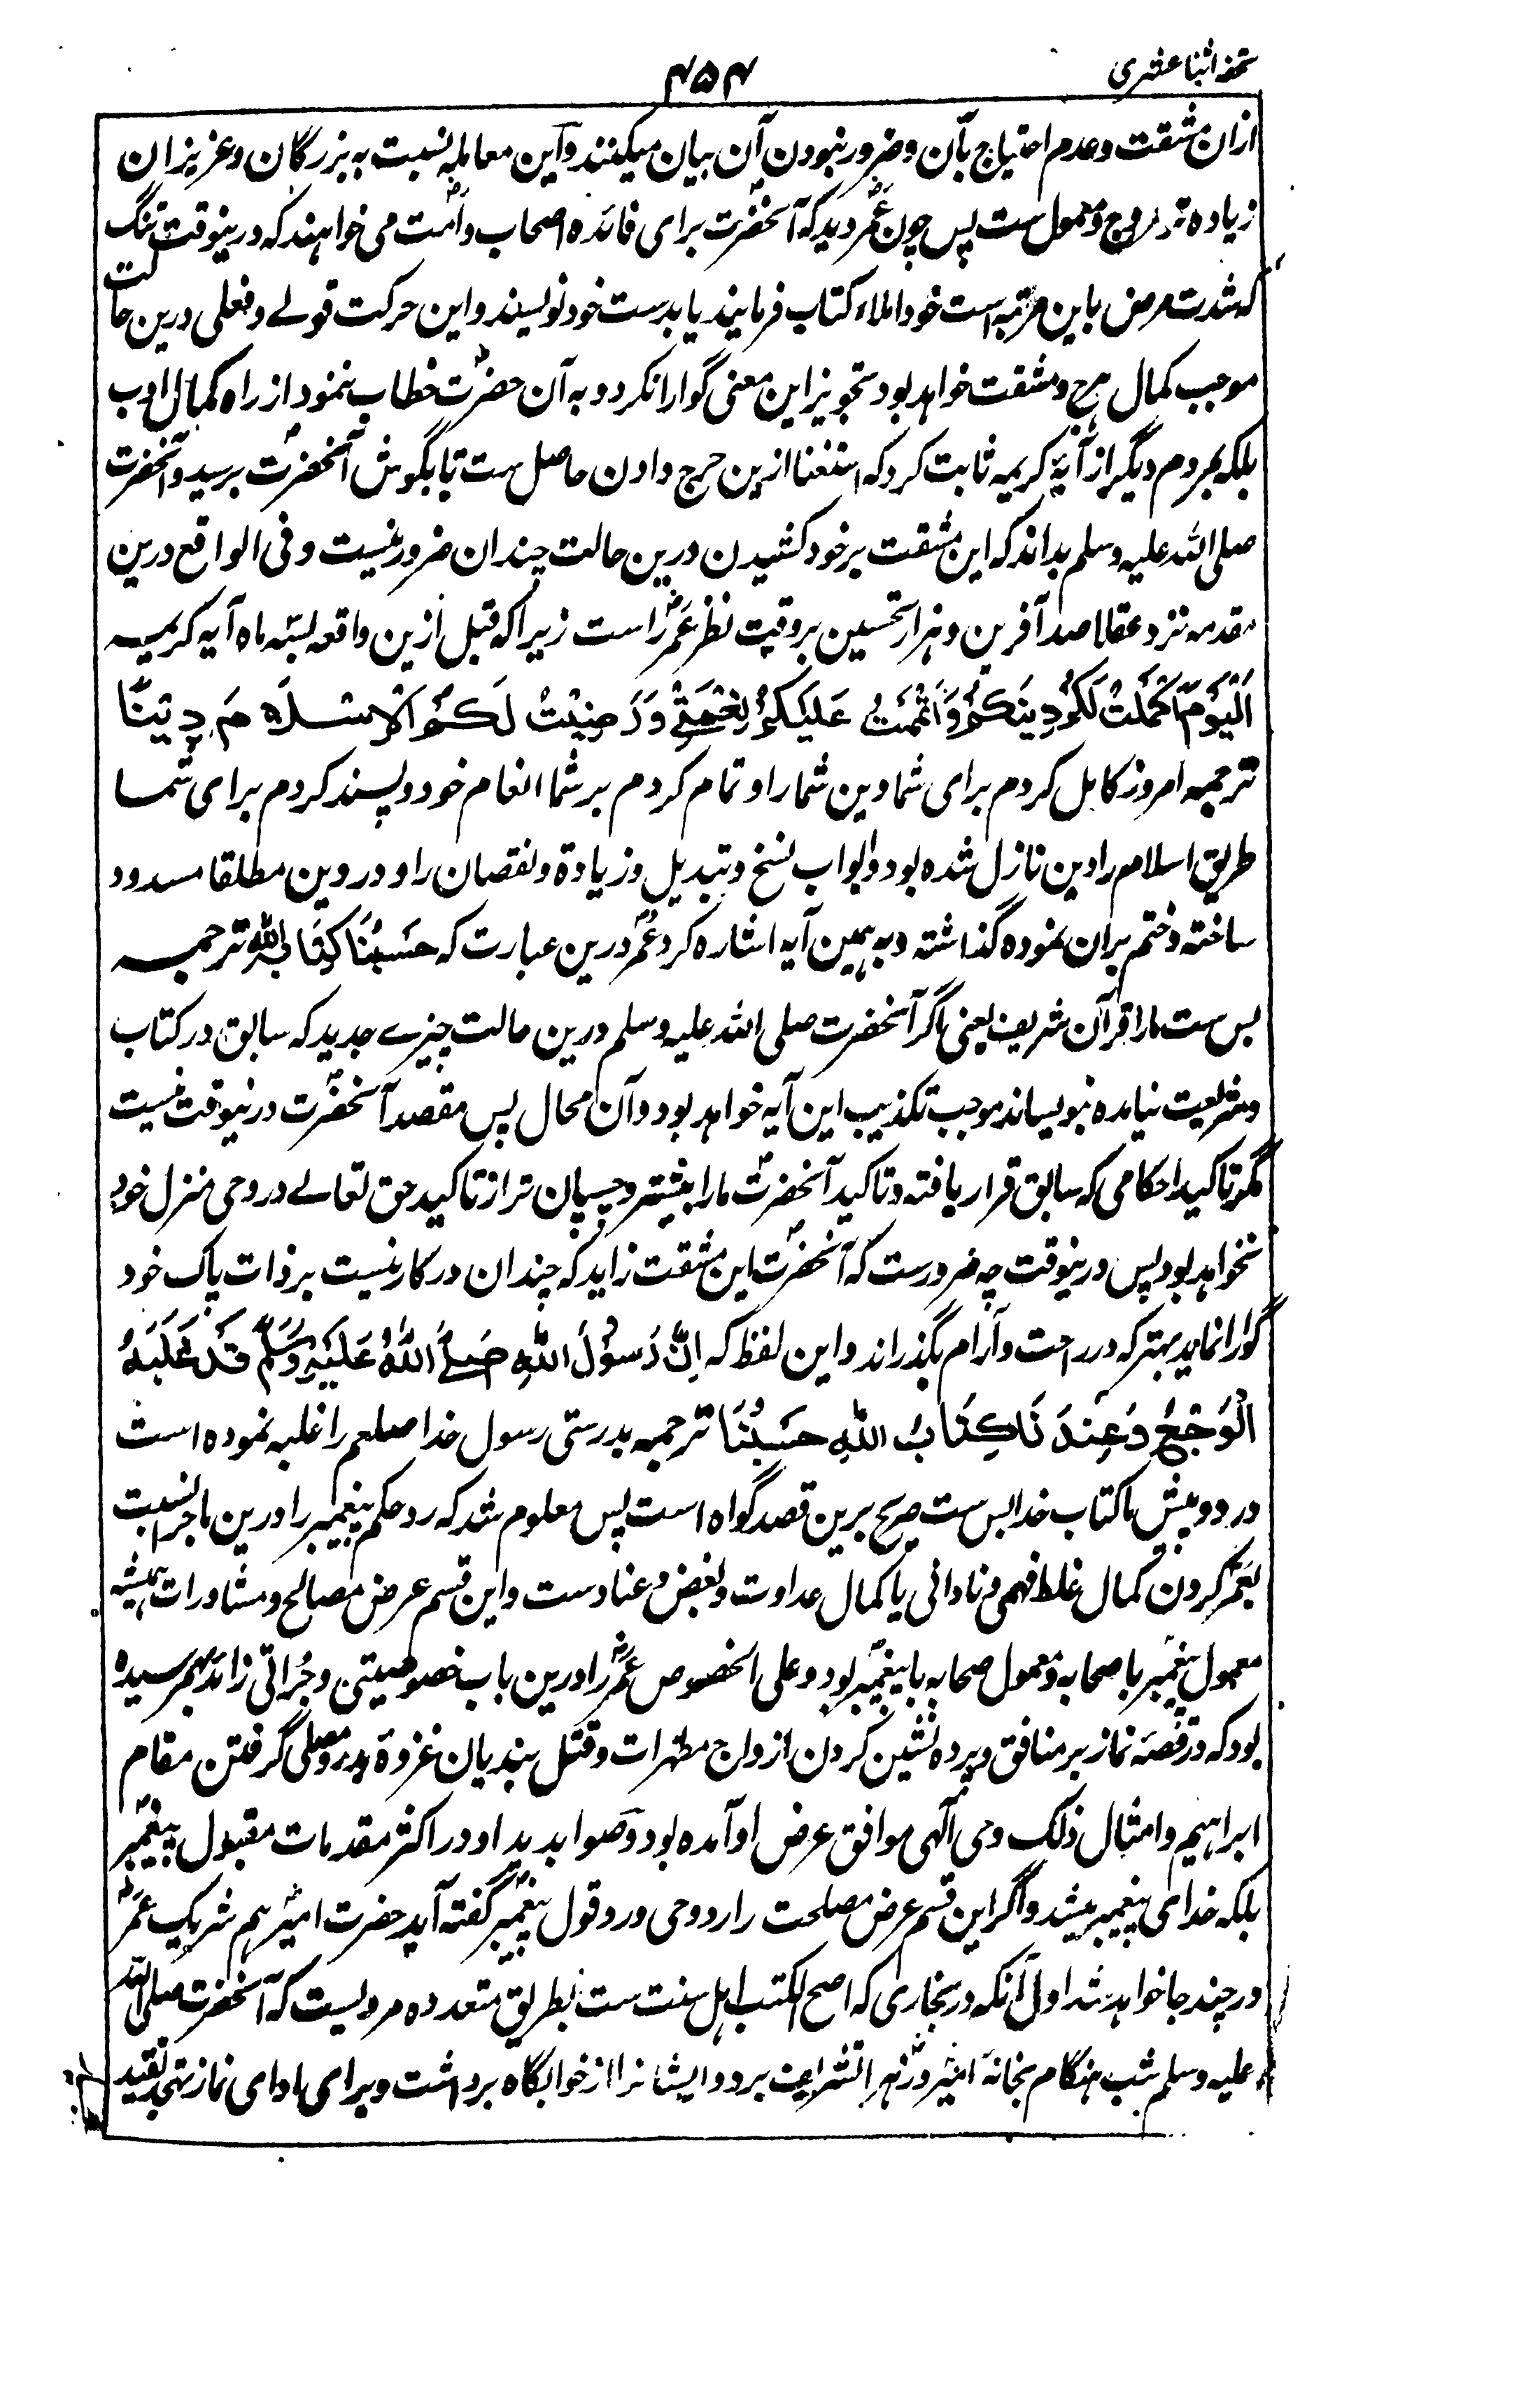 تحفہ اثنا عشری
۴۵۴
ازان مشقت و عدم احتیاج بآن و ضرور نبودن آن بیان میکنند و این معاملہ نسبت بہ بزرگان و عزیزان
زیادہ تر مروج و معمول ست پس چون عمرؓ دید کہ آنحضرتؐ برای فائدہ اصحاب و امت می خواہند کہ درینوقت تنگ
کہ شدت مرض باین مرتبہ است خود املاء کتاب فرمایند یا بدست خود نویسند و این حرکت قولے و فعلی درین حالت
موجب کمال حرج و مشقت خواہد بود تجویز این معنی گوارا نکرد و بہ آن حضرتؐ خطاب ننمود از راہ کمال ادب
بلکہ بمردم دیگر از آیۂ کریمہ ثابت کرد کہ استغنا ازین حرج دادن حاصل ست تا بگوش آنحضرتؐ برسد و آنحضرت
صلی اللہ علیہ وسلم بداند کہ این مشقت بر خود کشیدن درین حالت چندان ضرور نیست و فی الواقع درین
مقدمہ نزد عقلا صد آفرین و ہزار تحسین بر وقت نظر عمرؓ راست زیرا کہ قبل ازین واقعہ بسہ ماہ آیہ کریمہ
اَلْیَوْمَ اَکْمَلْتُ لَکُمْ دِیْنَکُمْ وَاَتْمَمْتُ عَلَیْکُمْ نِعْمَتِیْ وَرَضِیْتُ لَکُمُ الْاِسْلَامَ دِیْنًا
ترجمہ امروز کامل کردم برای شما دین شما را و تمام کردم بر شما انعام خود و پسند کردم برای شما
طریق اسلام را دین نازل شدہ بود و ابواب نسخ و تبدیل و زیادۃ و نقصان را و در دین مطلقا مسدود
ساختہ و ختم بران نمودہ گذاشتہ و بہ ہمین آیہ اشارہ کرد عمرؓ درین عبارت کہ حَسْبُنَا کِتَابُ اللہِ ترجمہ
بس ست ما را قرآن شریف یعنی اگر آنحضرت صلی اللہ علیہ وسلم درین حالت چیزے جدید کہ سابق در کتاب
و شریعت نیامدہ نبویساند موجب تکذیب این آیہ خواہد بود و آن محال پس مقصد آنحضرتؐ درینوقت نیست
مگر تاکید احکامی کہ سابق قرار یافتہ و تاکید آنحضرتؐ ما را بیشتر و چسپان تر از تاکید حق تعالے در وحی منزل خود
نخواہد بود پس درینوقت چہ ضرورست کہ آنحضرتؐ این مشقت زاید کہ چندان درکار نیست بر ذات پاک خود
گوارا نماید بہتر کہ در راحت و آرام بگذراند و این لفظ کہ اِنَّ رَسُوْلَ اللہِ صَلَّے اللہُ عَلَیْہِ وَسَلَّمَ قَدْ غَلَبَہُ
الْوَجَعُ وَعِنْدَنَا کِتَابُ اللہِ حَسْبُنَا ترجمہ بدرستی رسول خدا صلعم را غلبہ نمودہ است
درد و پیش ما کتاب خدا بس ست صریح برین قصد گواہ است پس معلوم شد کہ رد حکم پیغمبر را درین ماجرا نسبت
بعمرؓ کردن کمال غلط فہمی و نادانی یا کمال عداوت و بغض و عنادست و این قسم عرض مصالح و مشاورات ہمیشہ
معمول پیغمبرؐ با صحابہ و معمول صحابہ با پیغمبرؐ بود و علی الخصوص عمرؓ را درین باب خصوصیتی و جرأتی زائد بہم رسیدہ
بود کہ در قصۂ نماز بر منافق و پردہ نشین کردن ازواج مطہرات و قتل بندیان غزوۂ بدر و مصلی گرفتن مقام
ابراہیم و امثال ذلک وحی الٰہی موافق عرض او آمدہ بود و صوابدید او در اکثر مقدمات مقبول پیغمبرؐ
بلکہ خدای پیغمبر میشد و اگر این قسم عرض مصلحت را رد وحی و رد قول پیغمبرؐ گفتہ آید حضرت امیرؓ ہم شریک عمرؓ
در چند جا خواہد شد اول آنکہ در بخاری کہ اصح الکتب اہل سنت ست بطریق متعددہ مرویست کہ آنحضرت صلی اللہ
علیہ وسلم شب ہنگام بخانۂ امیرؓ و زہراؓ تشریف برد و ایشانرا از خوابگاہ برداشت و برای ادای نماز تہجد تقید